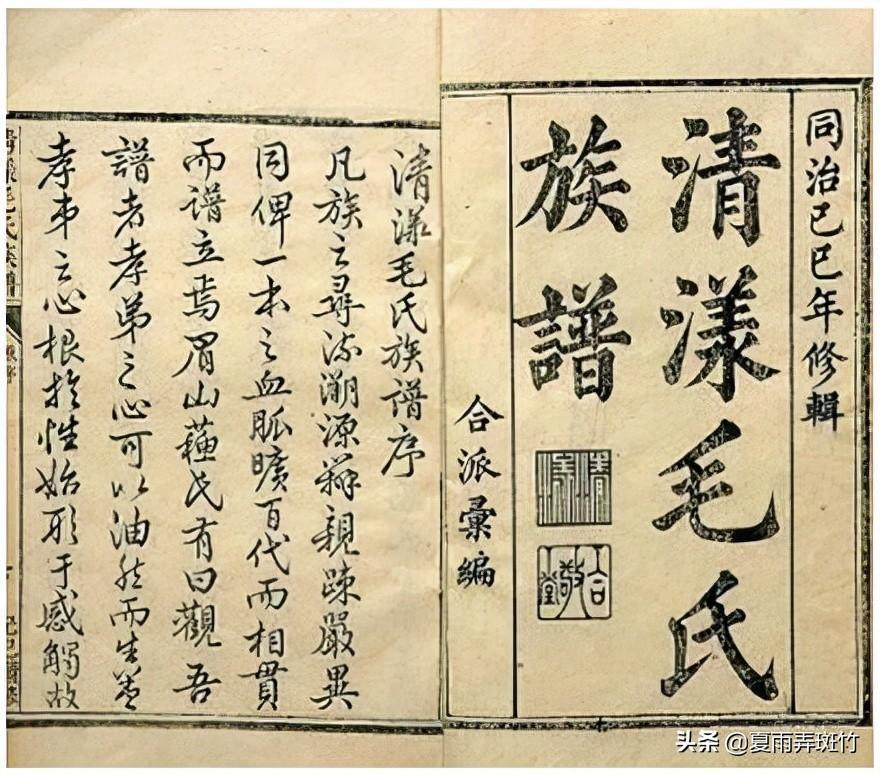 同治己巳年修輯
清漾毛氏
族譜
合敬堂
合派彙編
清漾毛氏族譜序
凡族之尋流溯源辨親疎嚴異
同俾一本之血脈曠百代而相貫
而譜立焉眉山蘓氏有曰觀吾
譜者孝弟之心可以油然而生蓋
孝弟之心根於性始形于感觸故
清漾毛氏族譜
头条 @夏雨弄斑竹